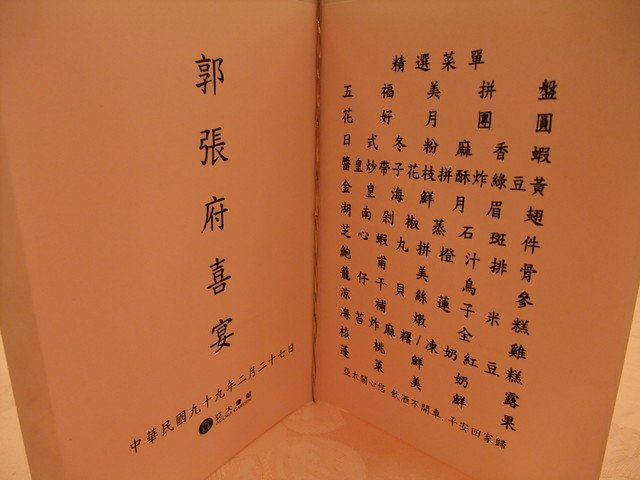 郭張府喜宴
中華民國九十九年二月二十七日
亞太會館
AGORA GARDEN
精選菜單
五福美拼盤
花好月團圓
日式冬粉麻香蝦
醬皇炒帶子花枝拼酥炸綠豆黃
金皇海鮮月眉翅
湖南剁椒蒸石斑件
芝心蝦丸拼橙汁排骨
鮑甫美烏參
籠仔干貝蓮子米糕
涼補絲燉全雞
海苔炸麻糬/凍奶紅豆糕
核桃鮮奶露
蓬萊美鮮果
亞太關心您 飲酒不開車,平安回家歸